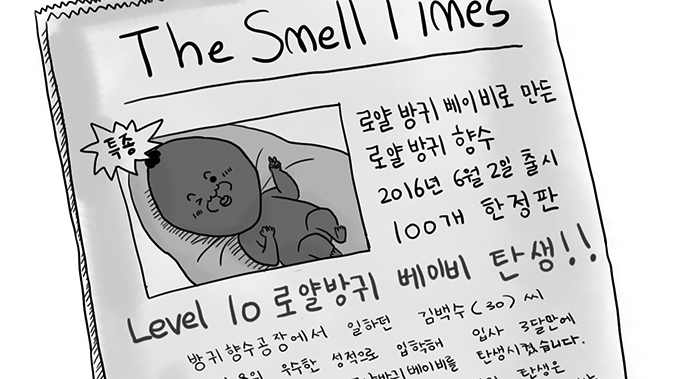 The Smell Times
특종
로얄 방귀 베이비로 만든
로얄 방귀 향수
2016년 6월 2일 출시
100개 한정판
Level 10 로얄방귀 베이비 탄생!!
방귀향수공장에서 일하던 김백수(30)씨
우수한 성적으로 입학해 입사 3달만에
방귀베이비를 탄생시켰습니다.
탄생은